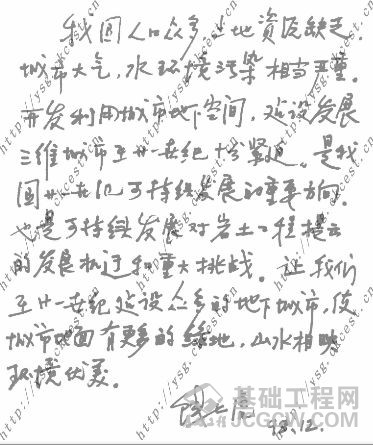 我国人口众多，土地资源缺乏，
城市大气，水环境污染相当严重。
开发利用城市地下空间，建设发展
三维城市至廿一世纪十分紧迫。是我
国廿一世纪可持续发展的重要方向。
也是可持续发展对岩土工程提出
的发展机遇和重大挑战。让我们
至廿一世纪建设众多的地下城市，使
城市地面有更多的绿地，山水相映
环境优美。
98.12.
基础工程网
jcgcw.com
http://ysg.ckcest.cn